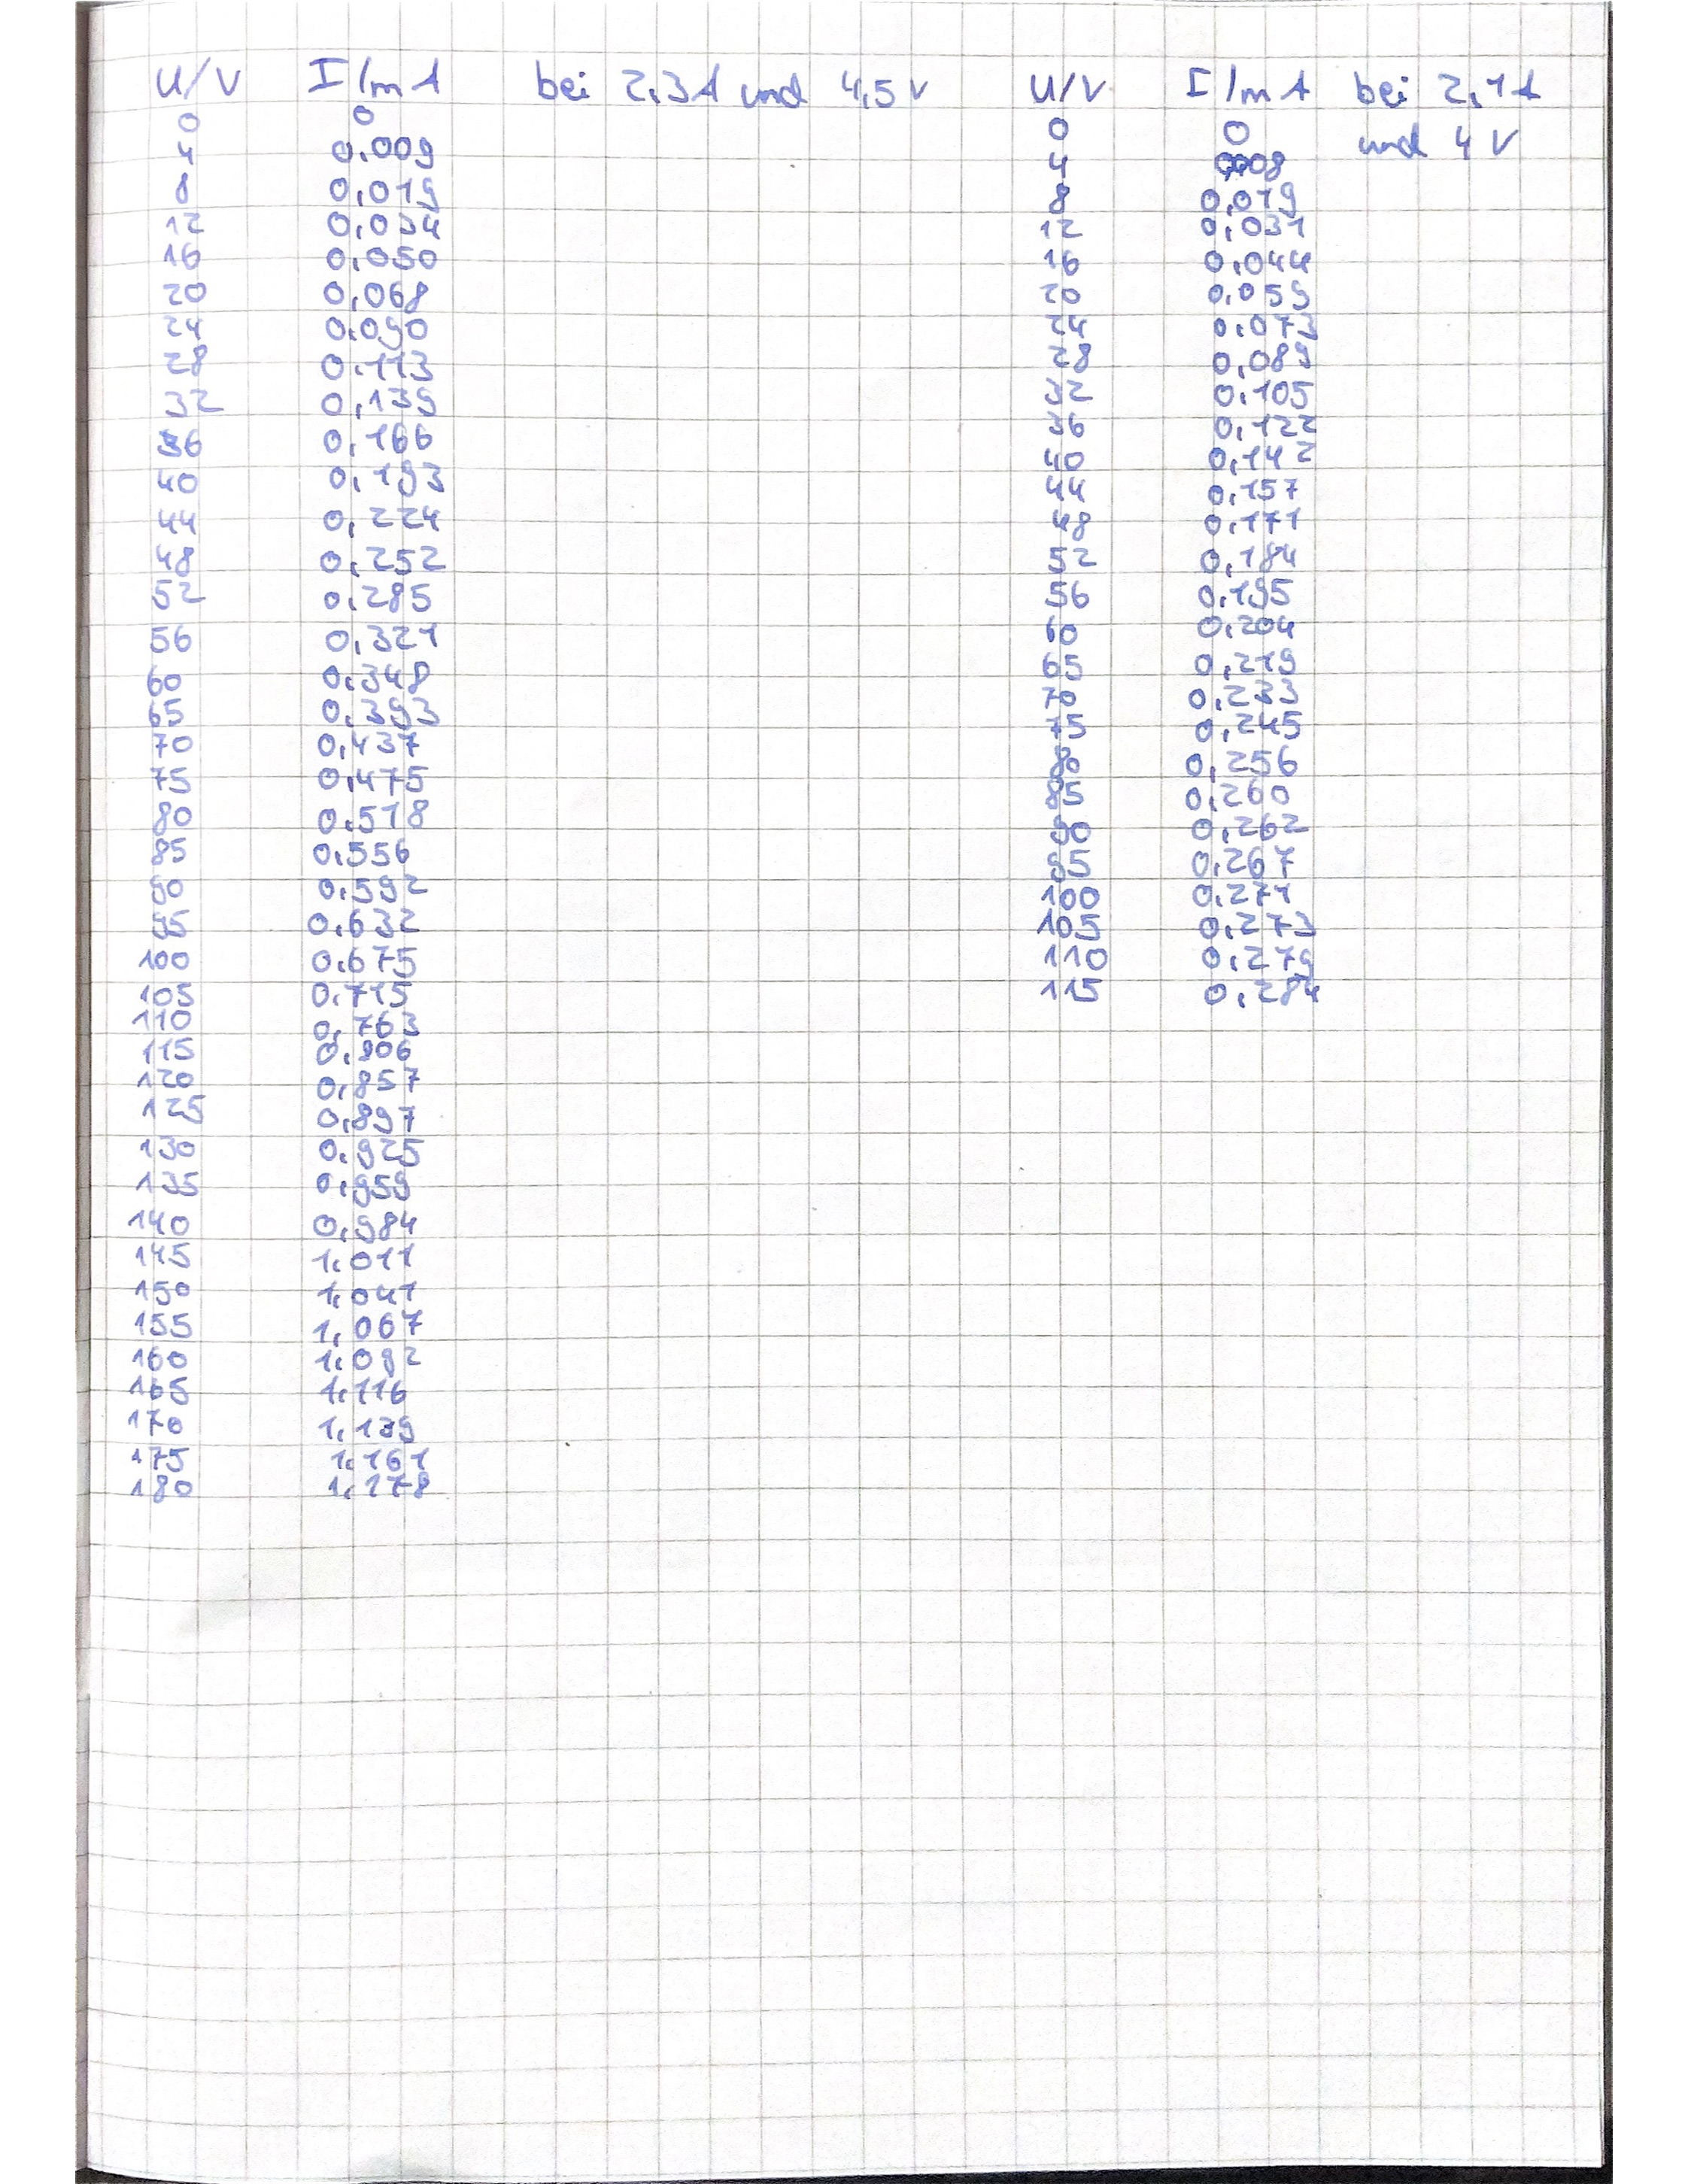 U/V I/mA bei 2,3A und 4,5V
0 0
4 0,009
8 0,019
12 0,034
16 0,050
20 0,068
24 0,090
28 0,113
32 0,139
36 0,166
40 0,193
44 0,224
48 0,252
52 0,285
56 0,321
60 0,348
65 0,393
70 0,437
75 0,475
80 0,518
85 0,556
90 0,592
95 0,632
100 0,675
105 0,715
110 0,763
115 0,806
120 0,857
125 0,897
130 0,925
135 0,959
140 0,984
145 1,011
150 1,041
155 1,067
160 1,092
165 1,116
170 1,139
175 1,161
180 1,178
U/V I/mA bei 2,1A
und 4V
0 0
4 0,008
8 0,019
12 0,031
16 0,044
20 0,059
24 0,073
28 0,089
32 0,105
36 0,122
40 0,142
44 0,157
48 0,171
52 0,184
56 0,195
60 0,204
65 0,219
70 0,233
75 0,245
80 0,256
85 0,260
90 0,262
95 0,267
100 0,271
105 0,273
110 0,279
115 0,284